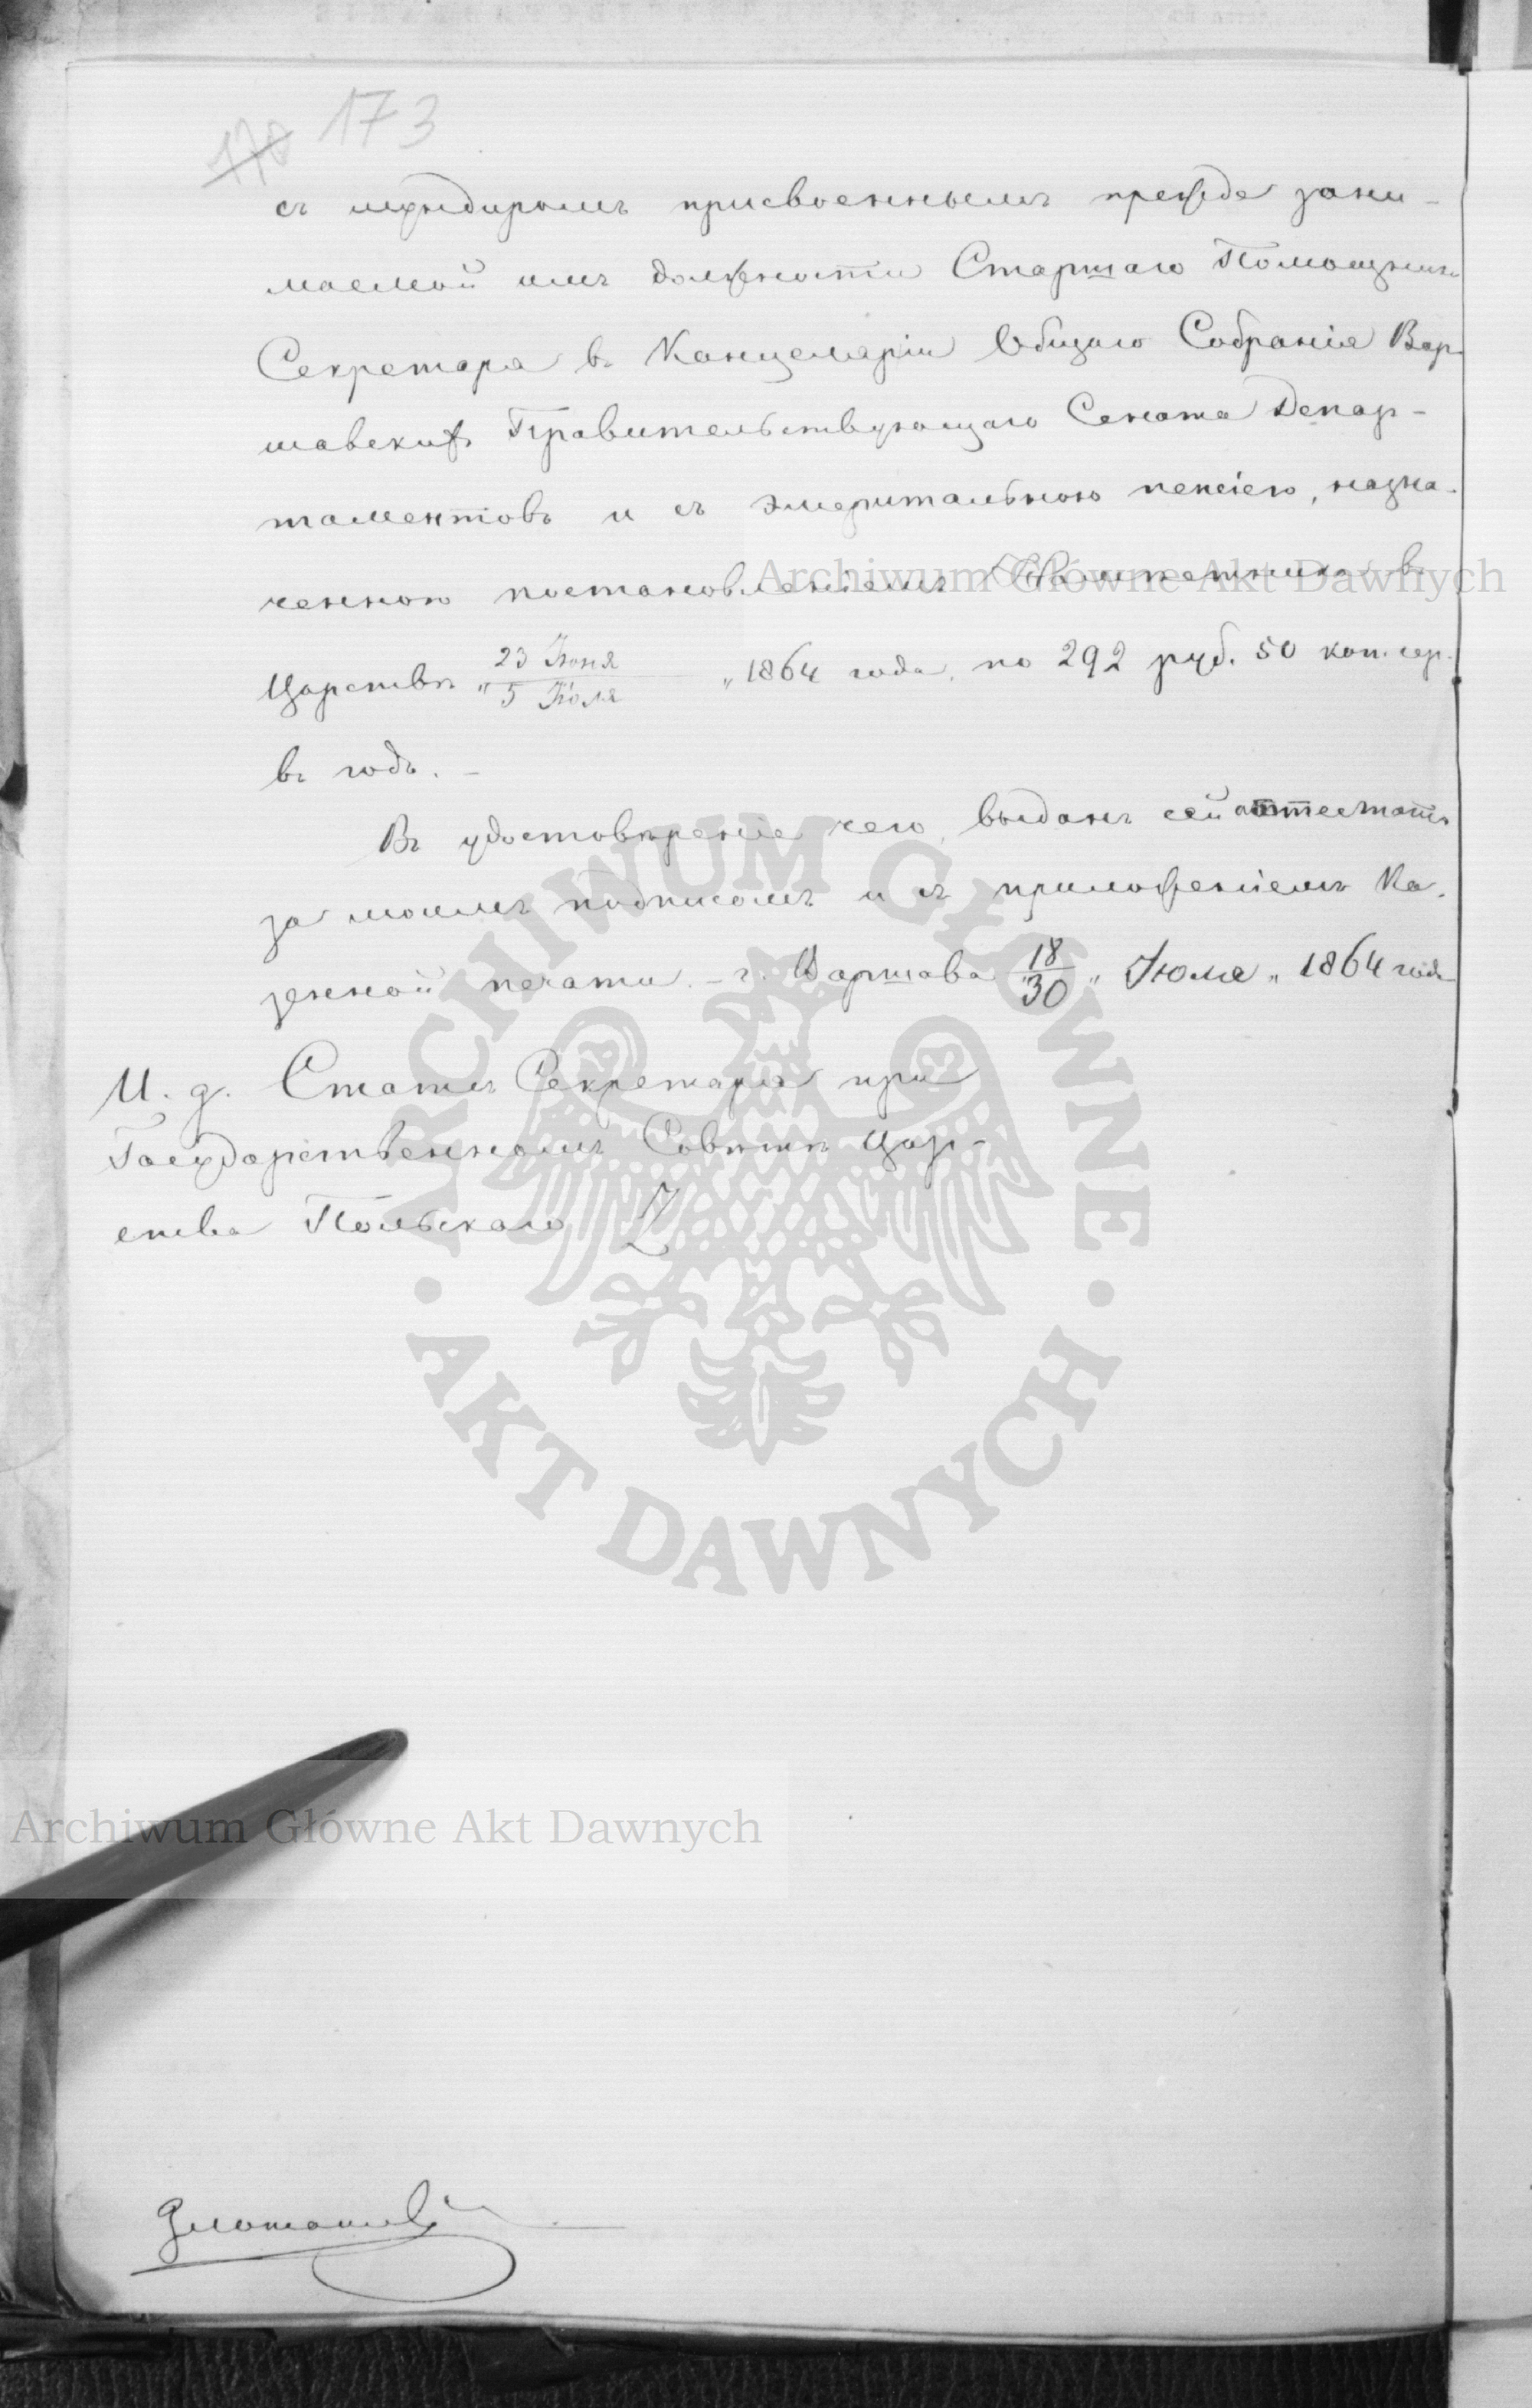 170 173
съ мундиромъ присвоеннымъ прежде зани-
маемой имъ должности Старшаго Помощника
Секретаря въ Канцеляріи Общаго Собранія Вар-
шавскихъ Правительствующаго Сената Депар-
таментовъ и съ эмеритальною пенсіею, назна-
ченною постановленіемъ Намѣстника въ
Царствѣ „ 23 Іюня / 5 Іюля „ 1864 года, по 292 руб. 50 коп. сер.
въ годъ. –
Въ удостовѣреніе чего, выданъ сей аттестатъ
за моимъ подписомъ и съ приложеніемъ Ка-
зенной печати. – г. Варшава 18/30 „ Іюля „ 1864 года
И. д. Статсъ Секретаря при
Государственномъ Совѣтѣ Цар-
ства Польскаго
Archiwum Główne Akt Dawnych
ARCHIWUM GŁÓWNE
AKT DAWNYCH
Archiwum Główne Akt Dawnych